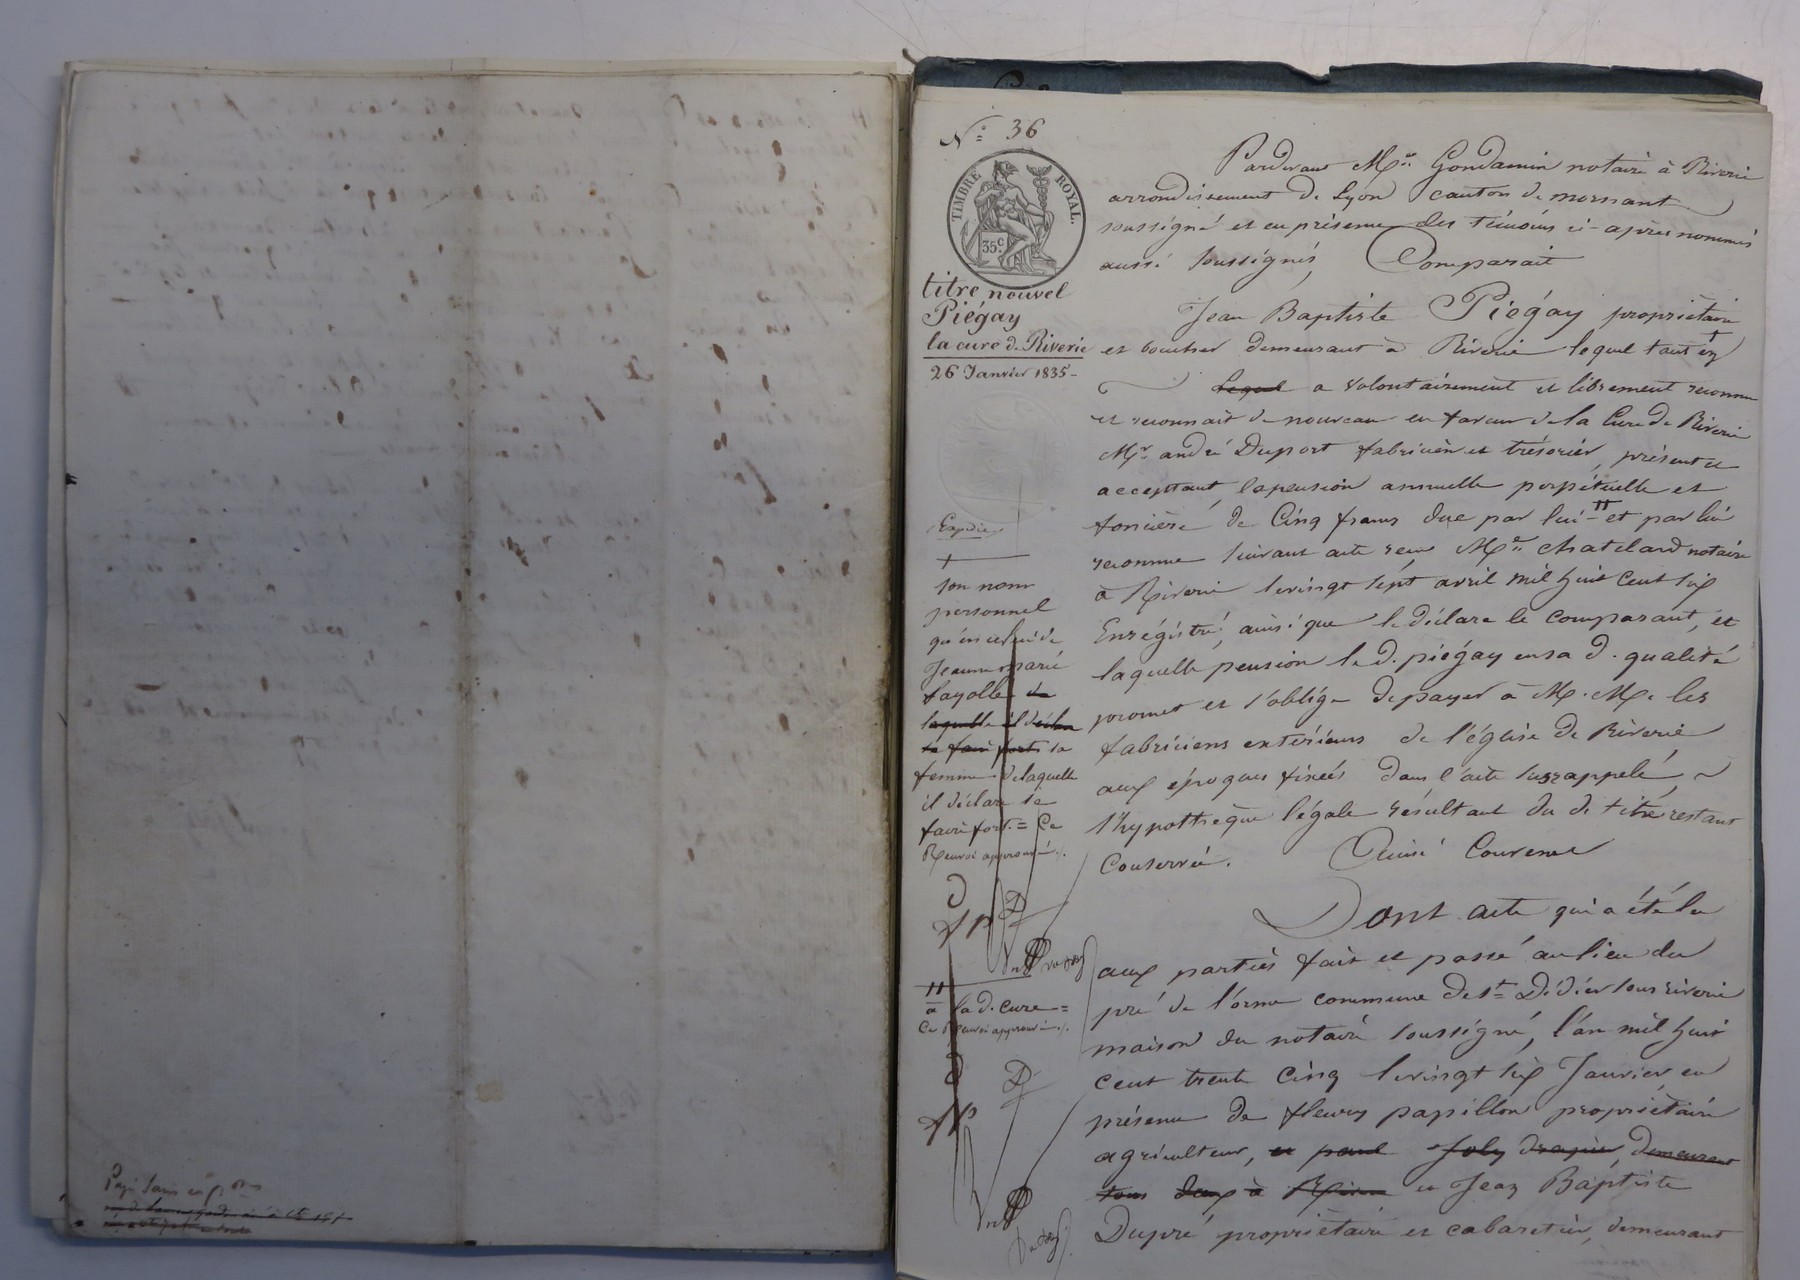 N.° 36
TIMBRE ROYAL.
35 c
titre nouvel
Piégay
la cure de Riverie
26 Janvier 1835
Expédié
Pardevant Me. Gondamin notaire à Riverie
arrondissement de Lyon canton de mornant
soussigné et en présence des témoins ci-après nommés
aussi soussignés, Comparait
Jean Baptiste Piégay propriétaire
et boucher demeurant à Riverie lequel tant en
Lequel a volontairement et librement reconnu
et reconnait de nouveau en faveur de la Cure de Riverie
Mr. andré Duport fabricien et trésorier, présent et
acceptant, la pension annuelle perpétuelle et
foncière de Cinq francs due par lui " et par lui
reconnue suivant acte reçu Me. Chatelard notaire
à Riverie le vingt sept avril mil huit cent six
Enrégistré, ainsi que le déclare le comparant, et
laquelle pension le d. piégay en sa d. qualité
promet et s'oblige de payer à M.M. les
fabriciens extérieurs de l'église de Riverie
aux époques fixées dans l'acte susrappelé,
l'hypothèque légale résultant du d. titre restant
Conservée. Ainsi Convenu
Dont acte qui a été lu
aux parties fait et passé au lieu du
pré de l'orme commune de St. Didier sous riverie
maison du notaire soussigné, l'an mil huit
cent trente Cinq le vingt six Janvier en
présence de fleury papillon propriétaire
agriculteur, et paul Joly drapier, demeurant
tous deux à Riverie et Jean Baptiste
Dupré propriétaire et cabaretier, demeurant
+
son nom
personnel
qu'en celui de
Jeanne marie
fayolle
laquelle il déclare
se faire fort sa
femme de laquelle
il déclare se
faire fort. = Ce
Renvoi approuvé ./.
"
à la d. cure =
Ce Renvoi approuvé ./.